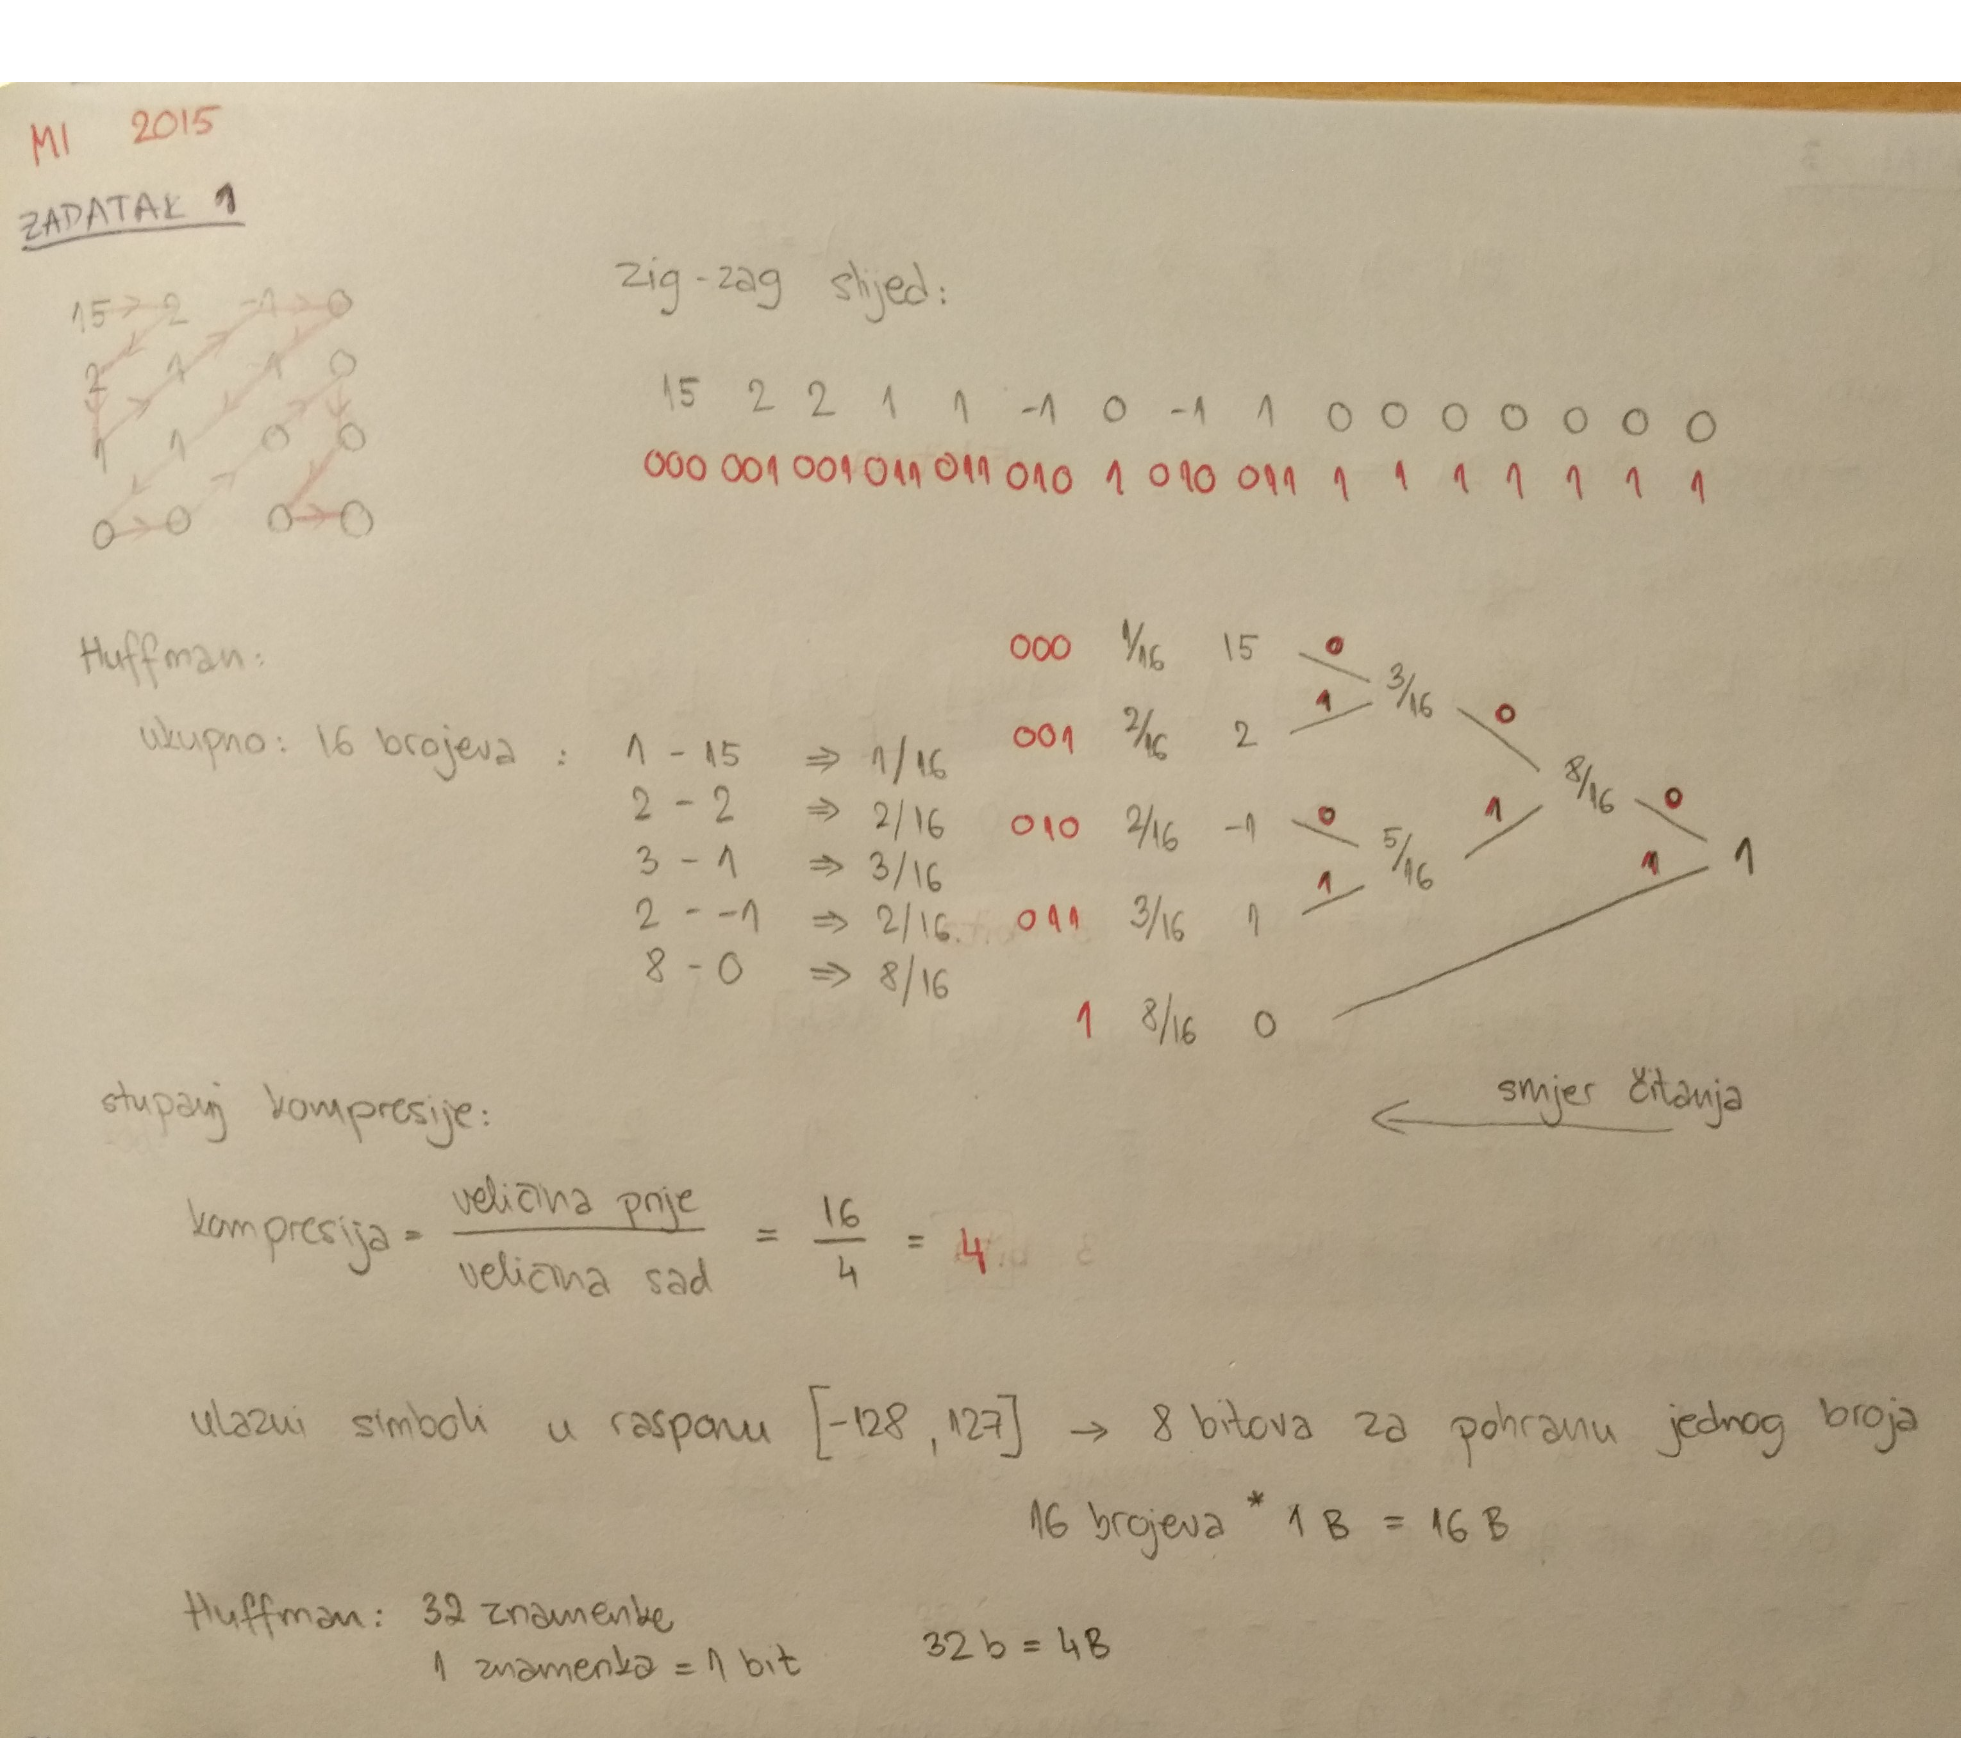 MI 2015
ZADATAK 1
15 2 -1 0
2 1 -1 0
1 1 0 0
0 0 0 0
zig-zag slijed:
15 2 2 1 1 -1 0 -1 1 0 0 0 0 0 0 0
000 001 001 011 011 010 1 010 011 1 1 1 1 1 1 1
Huffman:
ukupno: 16 brojeva :
1 - 15 ⇒ 1/16
2 - 2 ⇒ 2/16
3 - 1 ⇒ 3/16
2 - -1 ⇒ 2/16
8 - 0 ⇒ 8/16
000 1/16 15 0
3/16 0
001 2/16 2 1
8/16 0
010 2/16 -1 0
5/16 1
1 1
011 3/16 1 1
1 8/16 0
smjer čitanja
stupanj kompresije:
kompresija = veličina prije / veličina sad = 16/4 = 4
ulazni simboli u rasponu [-128, 127] → 8 bitova za pohranu jednog broja
16 brojeva * 1 B = 16 B
Huffman: 32 znamenke
1 znamenka = 1 bit 32 b = 4B